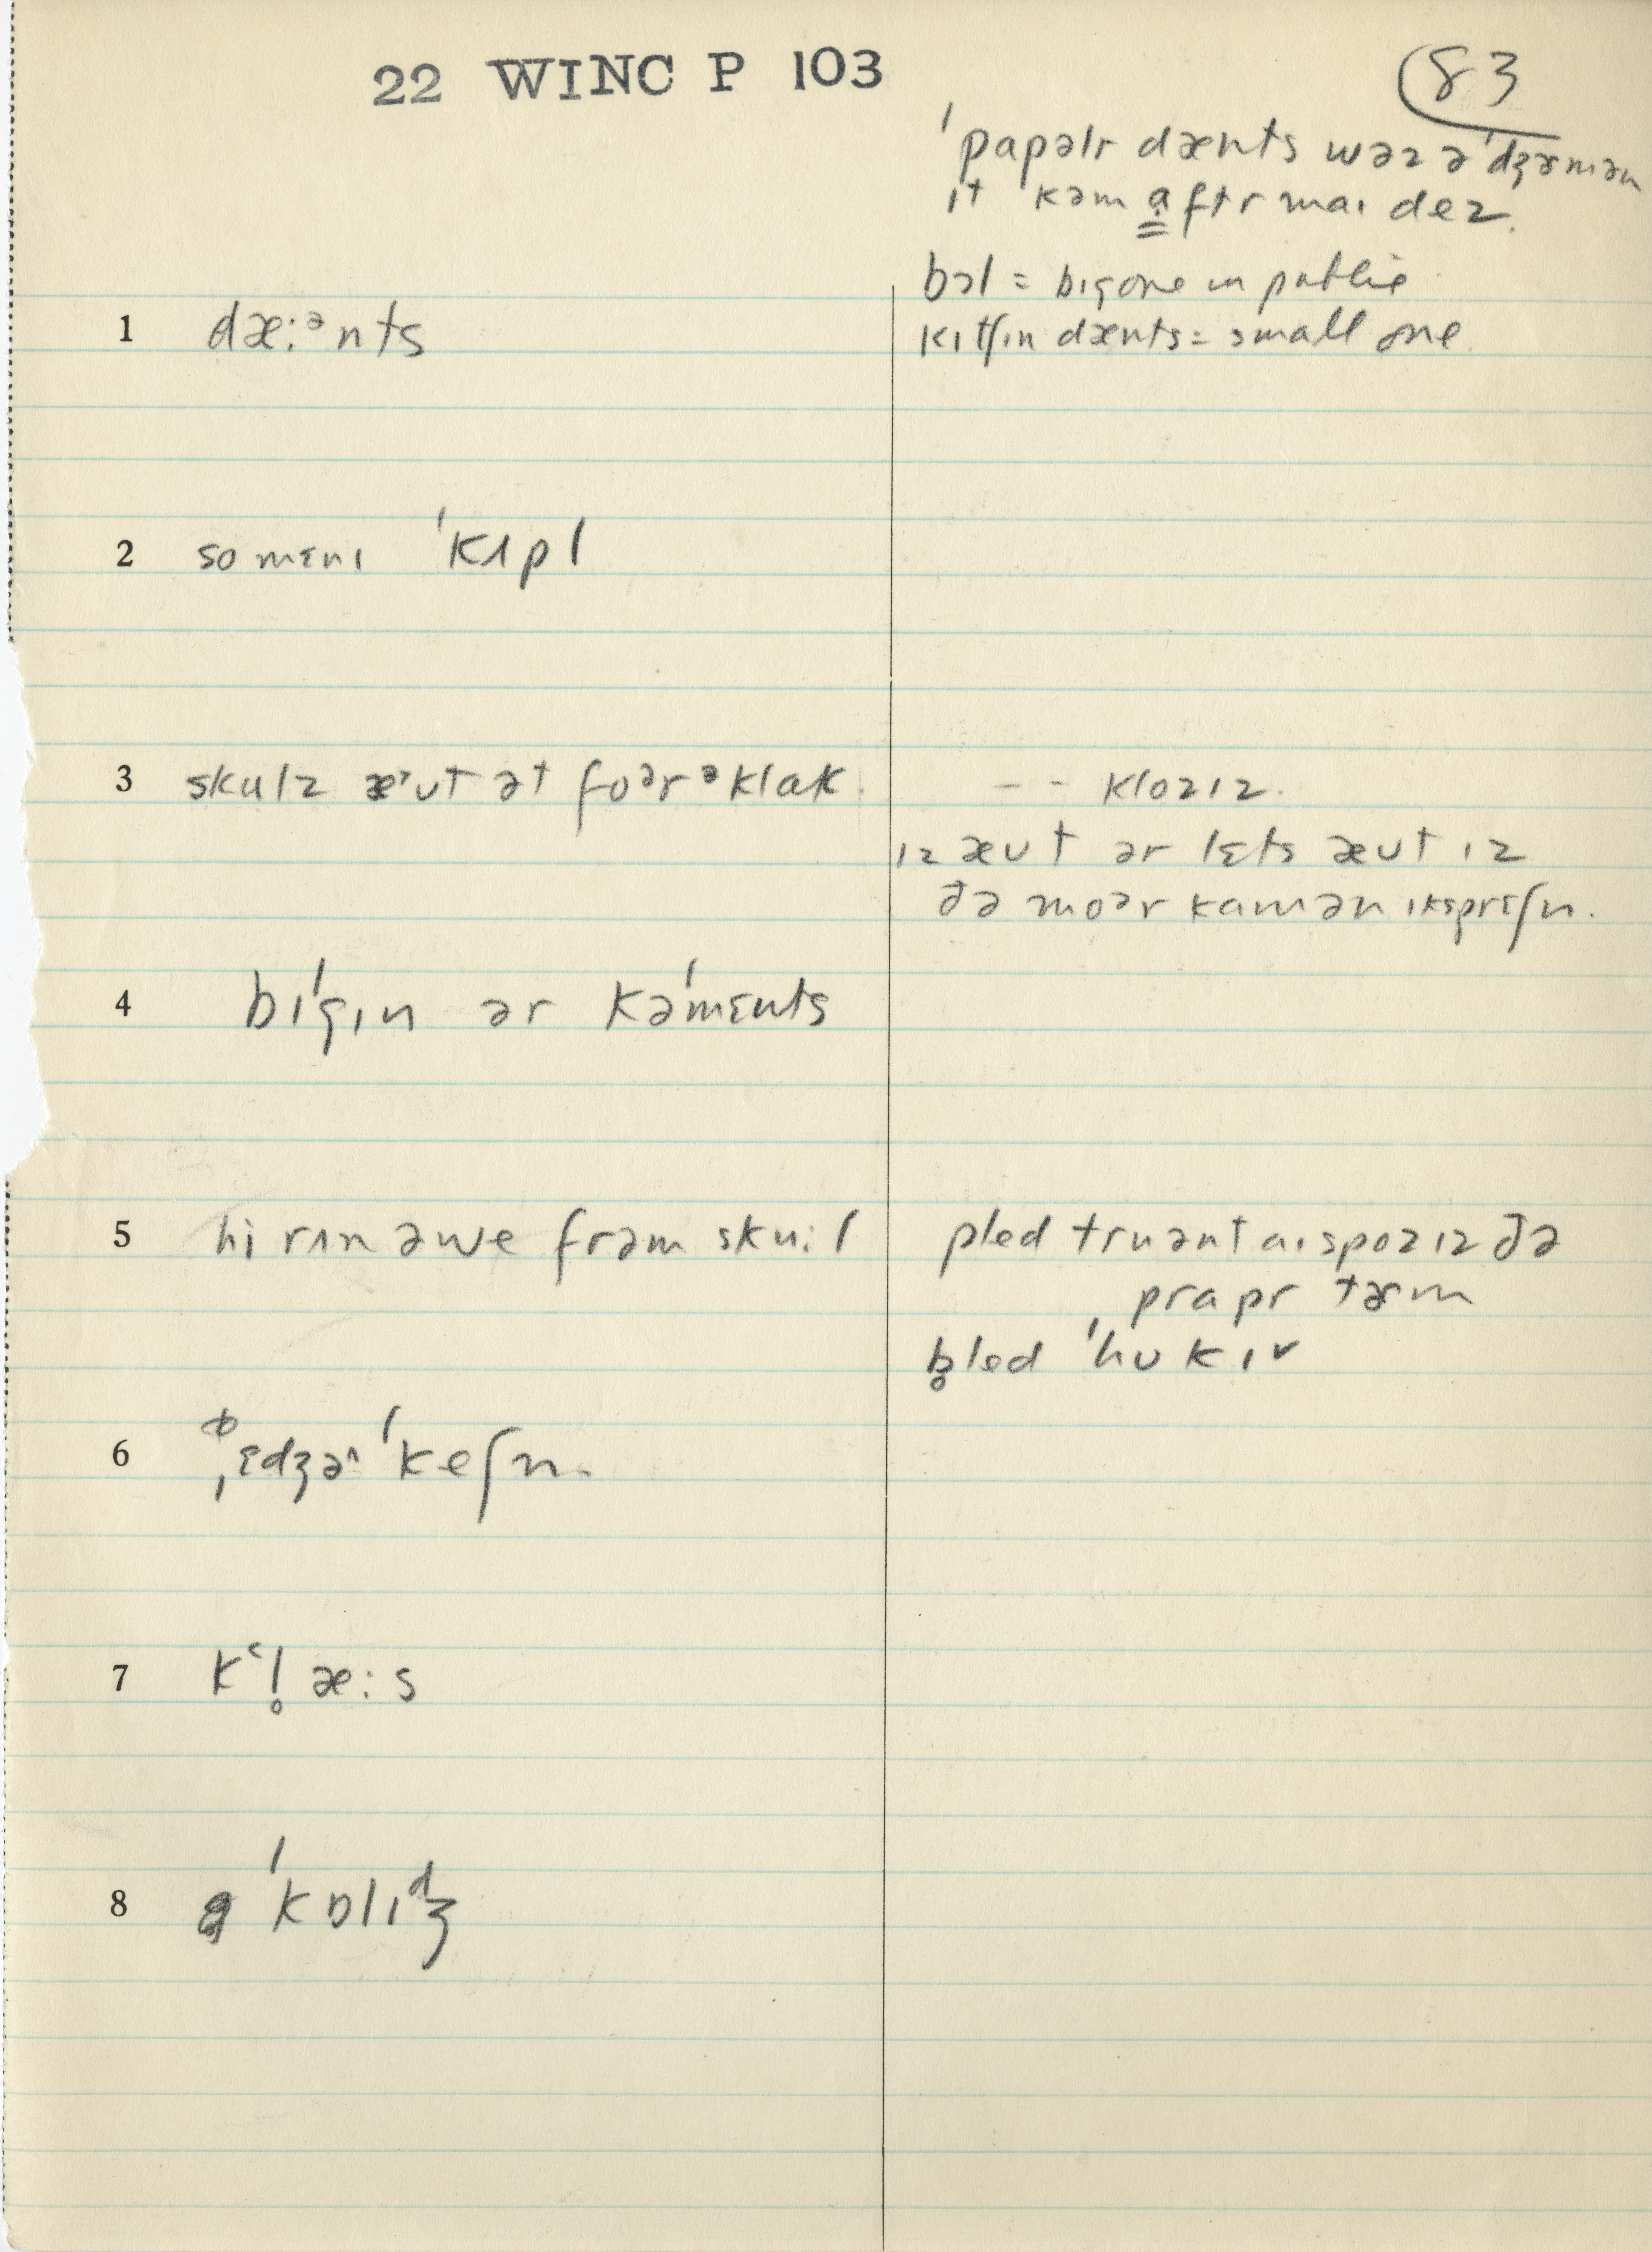 22 WINC P 103
83
ˈpapəlr dænts wəz ə ˈdʒɝmən
ɪt kəm a̤ftr maɪ dez.
bɔl = big one in public
kɪtʃɪn dænts = small one.
1 dæ:ᵊnts
2 so mɛnɪ ˈkʌpl
3 skulz æᵊʊt ət foᵊrᵊklak.
-- klozɪz.
ɪz æʊt ər lɛts æʊt ɪz
ðə moər kamən ɪksprɛʃn.
4 bɪˈgɪn ər kəˈmɛnts
5 hi rʌn əwe frəm sku:l
pled truənt aɪ spozɪz ðə
prapr tɝm
b̥led ˈhʊkɪ
6 ˌɛdʒəˈkeʃn.
7 kʻl̥æ:s
8 ə ˈkɒlɪᵈʒ